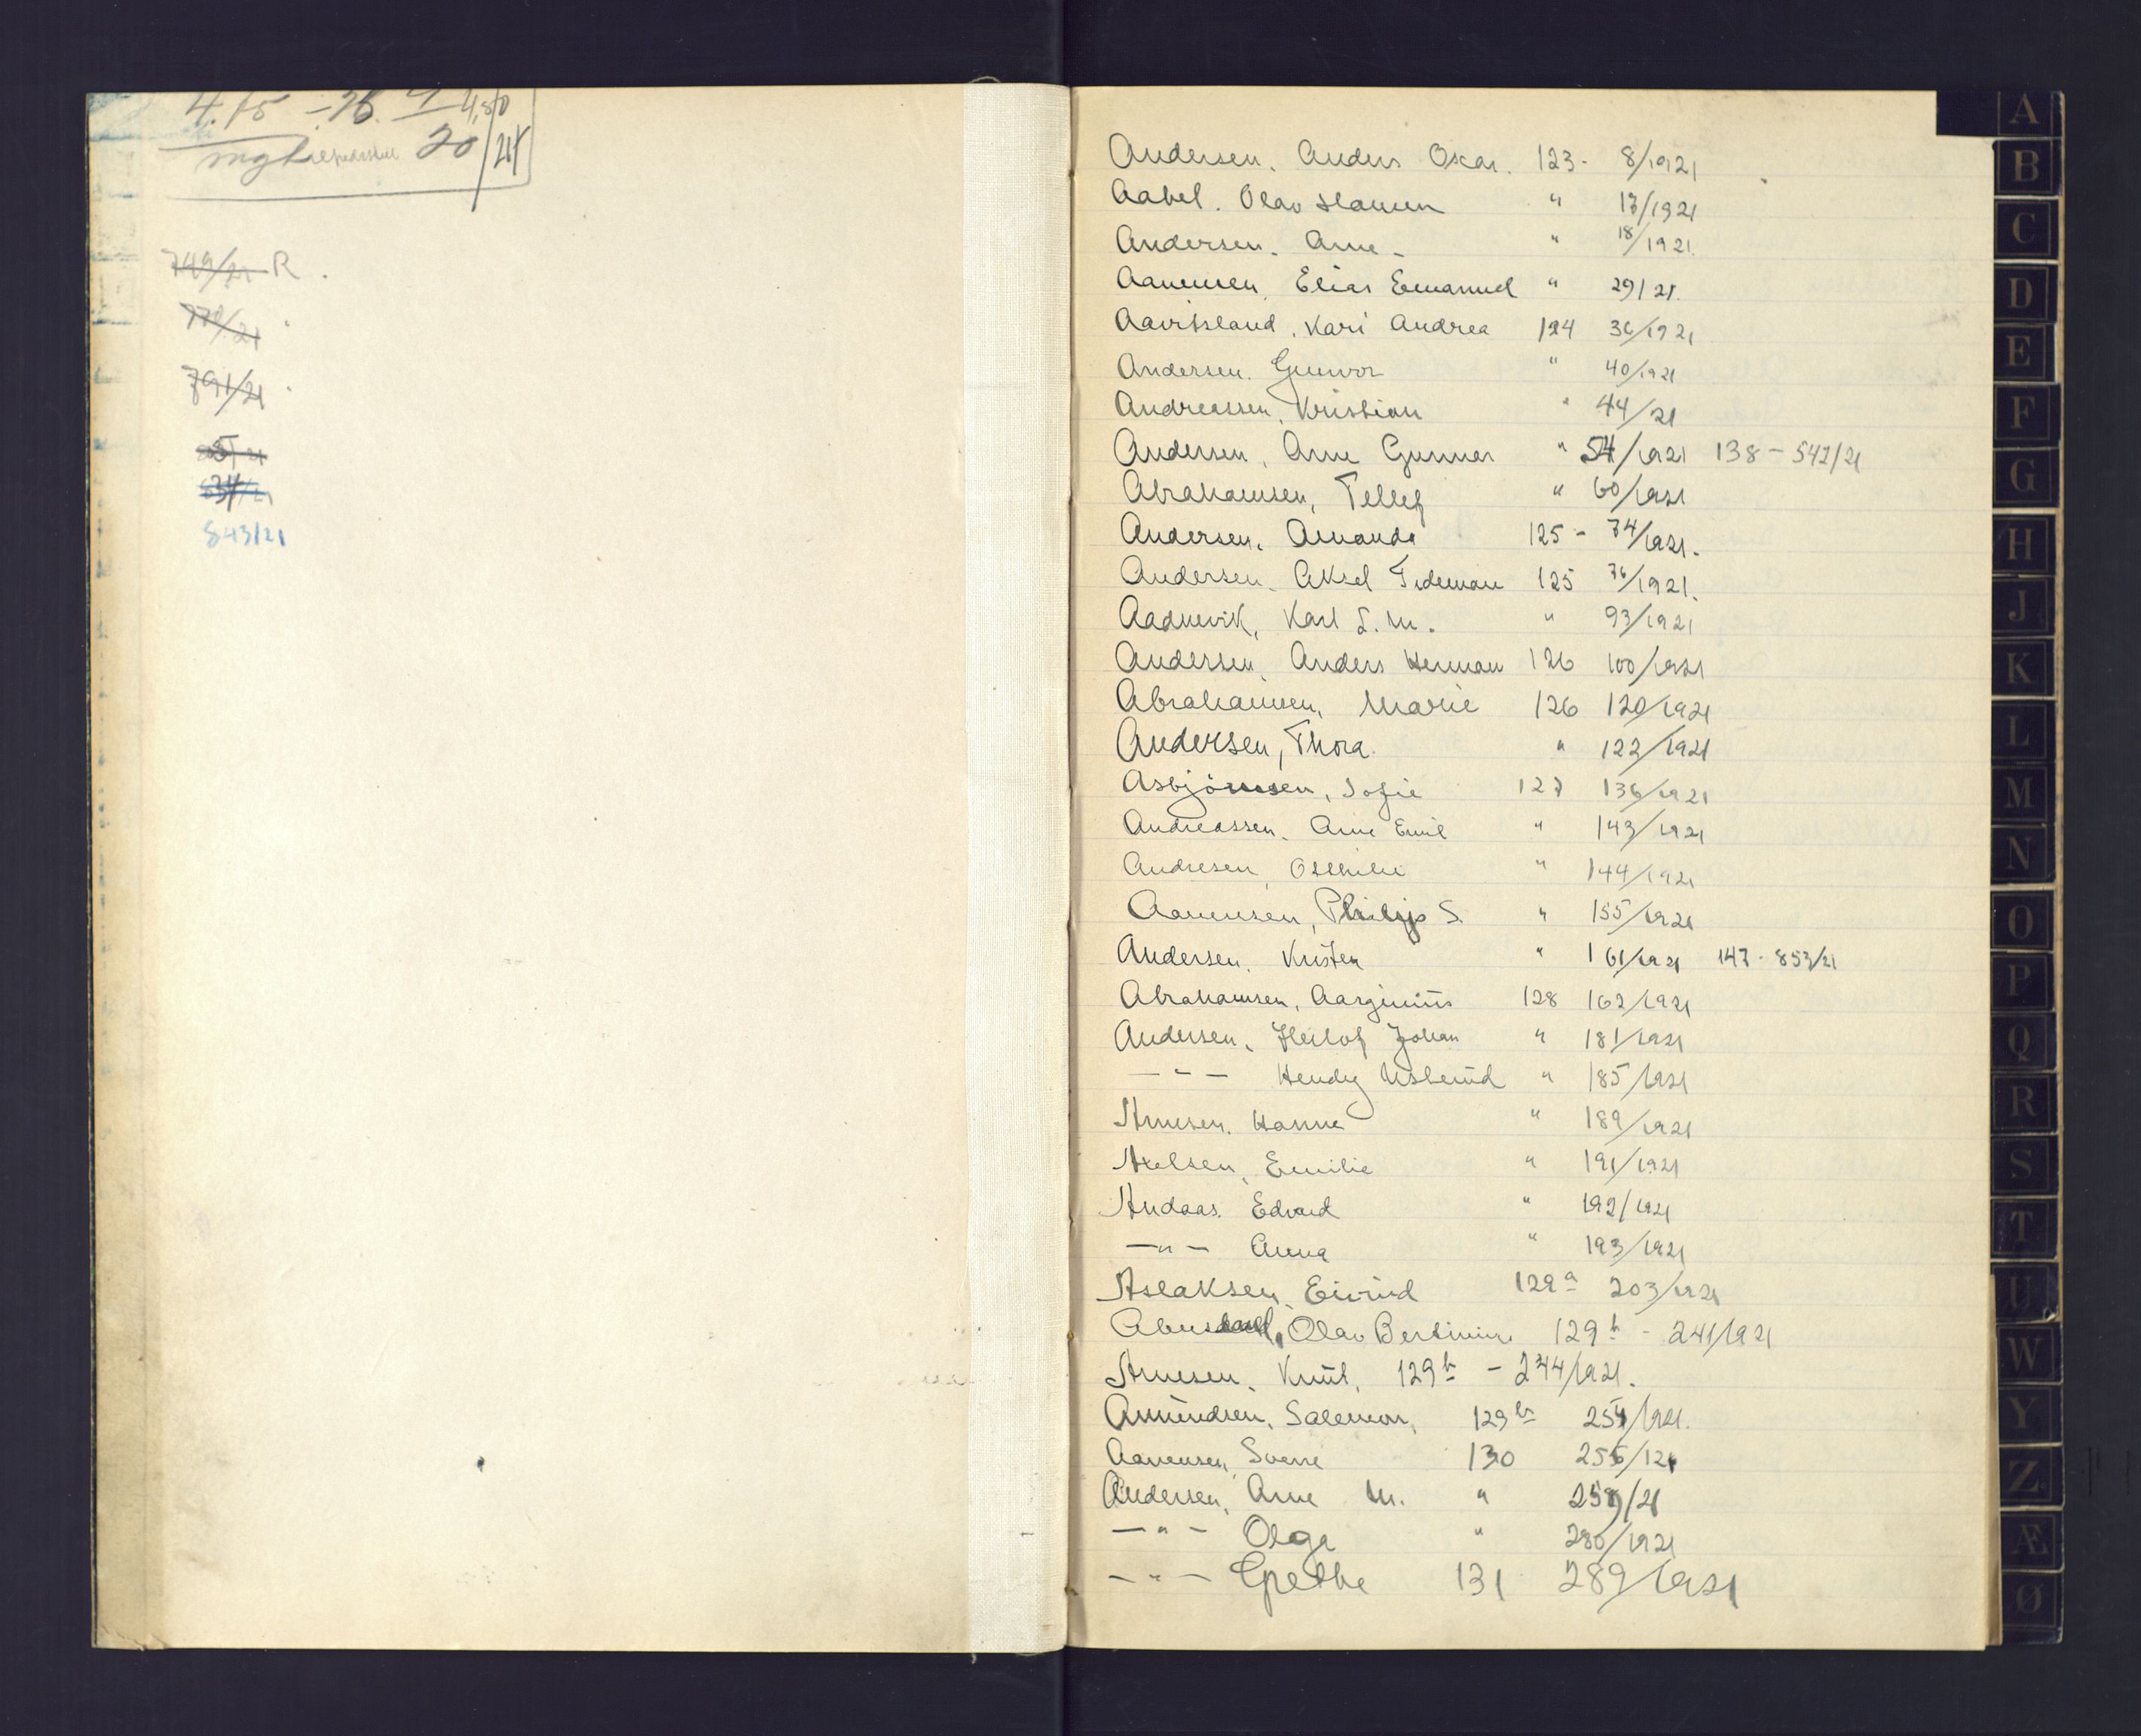 20/21
749/21 R.
791/21
843/21
Andersen. Anders Oskar. 123- 8/1921
Aabel. Olav " 17/1921
Andersen. Arne - " 18/1921.
Aanensen, Elias Emanuel " 29/21.
Aavitsland, Kari Andrea 124 36/1921
Andersen. Gunvor " 40/1921
Andreassen, Kristian " 44/21
Andersen, Arne Gunnar " 54/1921 138 - 542/21
Abrahamsen, Tellef " 60/1921
Andersen, Amanda 125 - 74/1921.
Andersen. Aksel Tideman 125 76/1921.
Aadnevik, Karl S. M. " 93/1921
Andersen, Anders Herman 126 100/1921
Abrahamsen, Marie 126 120/1921
Andersen, Thora. " 122/1921
Asbjörnsen, Sofie 127 136/1921
Andreassen. Arne Emil " 143/1921
Andresen, Othilie " 144/1921
Aanensen, Philip S. " 155/1921
Andersen. Kristen " 161/1921 147 - 853/21
Abrahamsen, 128 162/1921
Andersen, Herlof Johan " 181/1921
— " — " 185/1921
Arnesen. Hanna " 189/1921
Axelsen, Emilie " 191/1921
Andaas. Edvard " 192/1921
— " — Anna " 193/1921
Aslaksen, Eivind 129a 203/1921
Abusdal, Olav Bertinius 129b - 241/1921
Arnesen, Knut, 129b - 244/1921.
Amundsen, Salemon, 129b 254/1921.
Aanensen, Sverre 130 255/121
Andersen, Arne M. " 259/21
— " — Olga " 280/1921
— " — Grethe 131 289/1921
A
B
C
D
E
F
G
H
J
K
L
M
N
O
P
Q
R
S
T
U
W
Y
Z
Æ
Ø